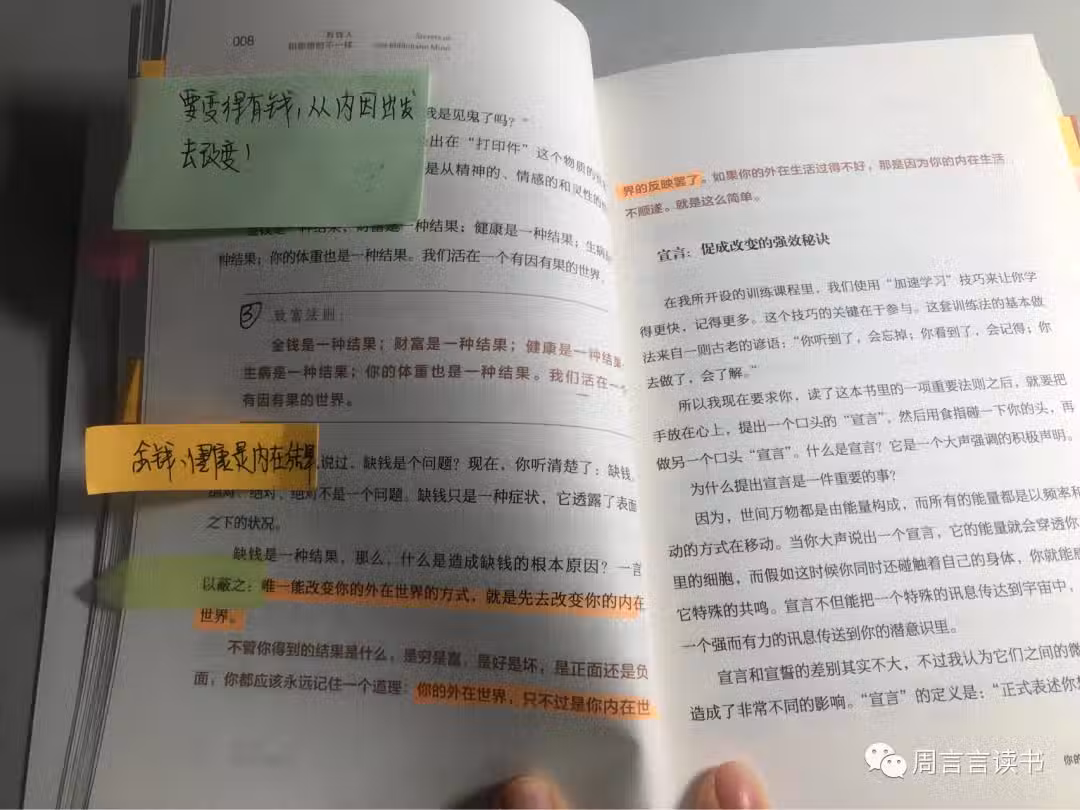 008
有钱人
和你想的不一样
Secrets of
the Millionaire Mind
要变得有钱,从内因出发
去改变!
我是见鬼了吗?”
出在“打印件”这个物质的
是从精神的、情感的和灵性的
财富是一种结果;健康是一种结果;生病
种结果;你的体重也是一种结果。我们活在一个有因有果的世界。
③ 致富法则:
金钱是一种结果;财富是一种结果;健康是一种结果
生病是一种结果;你的体重也是一种结果。我们活在一个
有因有果的世界。
金钱、健康是内在结果
说过,缺钱是个问题?现在,你听清楚了:缺钱
绝对、绝对不是一个问题。缺钱只是一种症状,它透露了表面
之下的状况。
缺钱是一种结果,那么,什么是造成缺钱的根本原因?一言
以蔽之:唯一能改变你的外在世界的方式,就是先去改变你的内在
世界。
不管你得到的结果是什么,是穷是富,是好是坏,是正面还是负
面,你都应该永远记住一个道理:你的外在世界,只不过是你内在世
界的反映罢了。如果你的外在生活过得不好,那是因为你的内在生活
不顺遂。就是这么简单。
宣言:促成改变的强效秘诀
在我所开设的训练课程里,我们使用“加速学习”技巧来让你学
得更快,记得更多。这个技巧的关键在于参与。这套训练法的基本做
法来自一则古老的谚语:“你听到了,会忘掉;你看到了,会记得;你
去做了,会了解。”
所以我现在要求你,读了这本书里的一项重要法则之后,就要把
手放在心上,提出一个口头的“宣言”,然后用食指碰一下你的头,再
做另一个口头“宣言”。什么是宣言?它是一个大声强调的积极声明。
为什么提出宣言是一件重要的事?
因为,世间万物都是由能量构成,而所有的能量都是以频率和
动的方式在移动。当你大声说出一个宣言,它的能量就会穿透你
里的细胞,而假如这时候你同时还碰触着自己的身体,你就能
它特殊的共鸣。宣言不但能把一个特殊的讯息传达到宇宙中,
一个强而有力的讯息传送到你的潜意识里。
宣言和宣誓的差别其实不大,不过我认为它们之间的微
造成了非常不同的影响。“宣言”的定义是:“正式表述你
周言言读书
你的